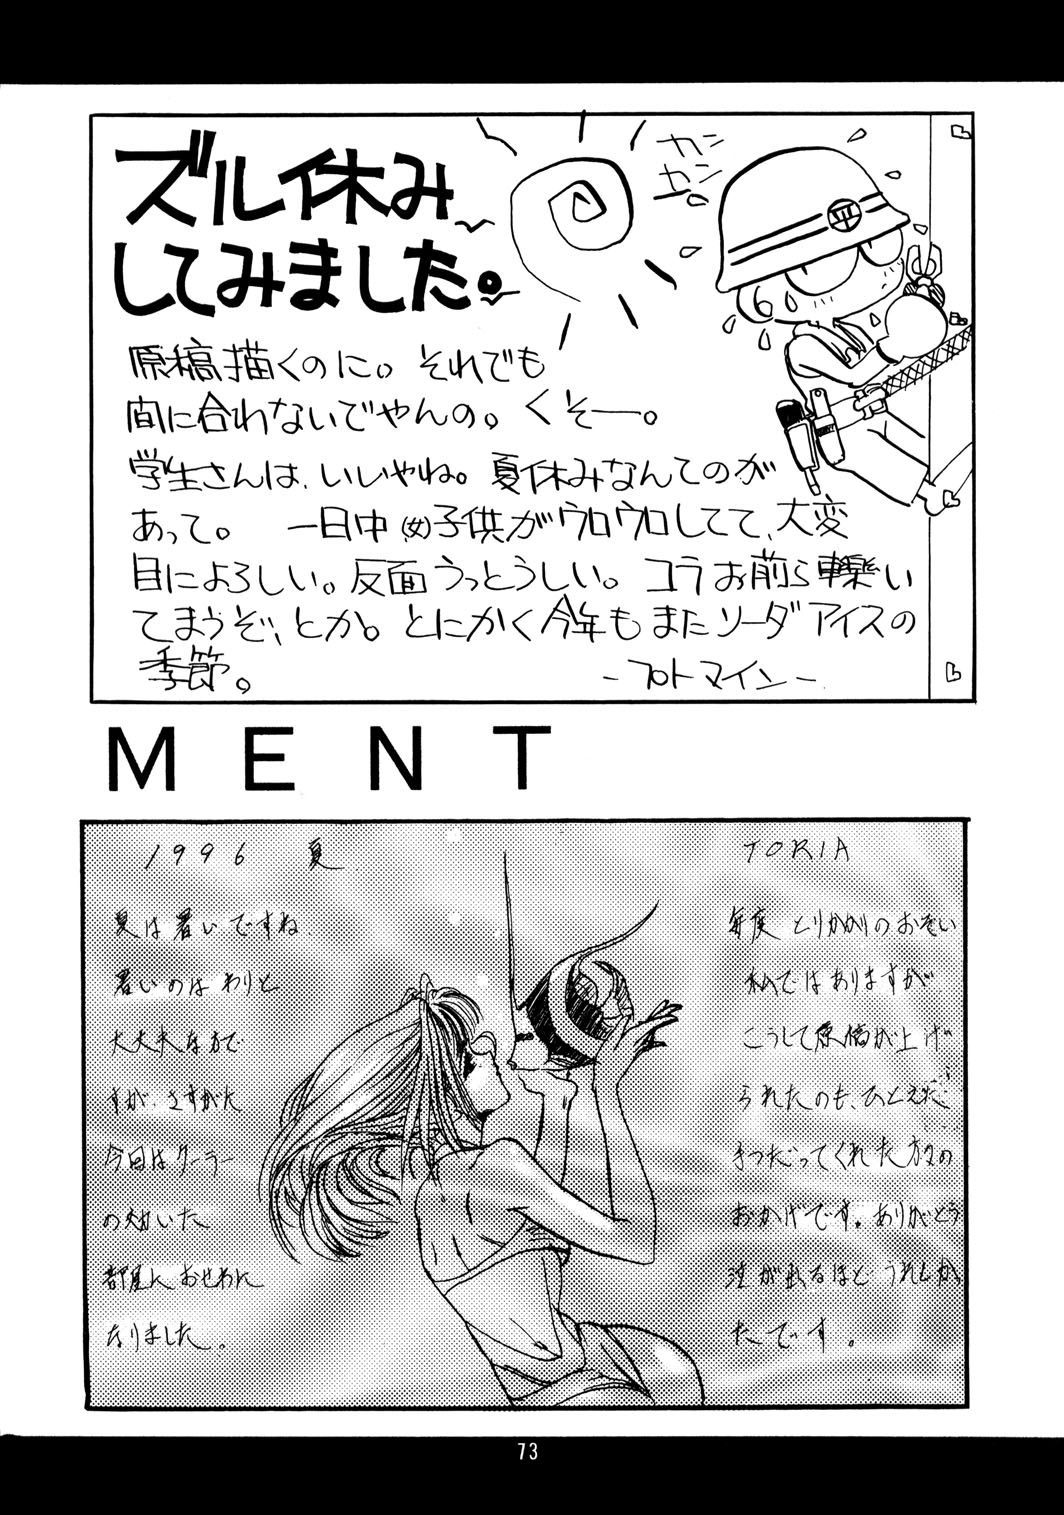 ズル休み
してみました。
カン
カン
原稿描くのに。それでも
間に合わないでやんの。くそー。
学生さんは、いいやね。夏休みなんてのが
あって。 一日中(女)子供がウロウロしてて、大変
目によろしい。反面うっとうしい。コラお前ら轢い
てまうぞ、とか。とにかく今年もまたソーダアイスの
季節。
－プロトマイン－
MENT
1996 夏
夏は暑いですね。
暑いのはわりと
大丈夫な方で
すが、さすがに
今回はクーラー
の効いた
部屋におせわに
なりました。
TORIA
毎度とりかかりのおそい
私ではありますが
こうして原稿が上げ
られたのも、ひとえに
手つだってくれた方々の
おかげです。ありがとう
泣が出るほどうれしか
たです。
73